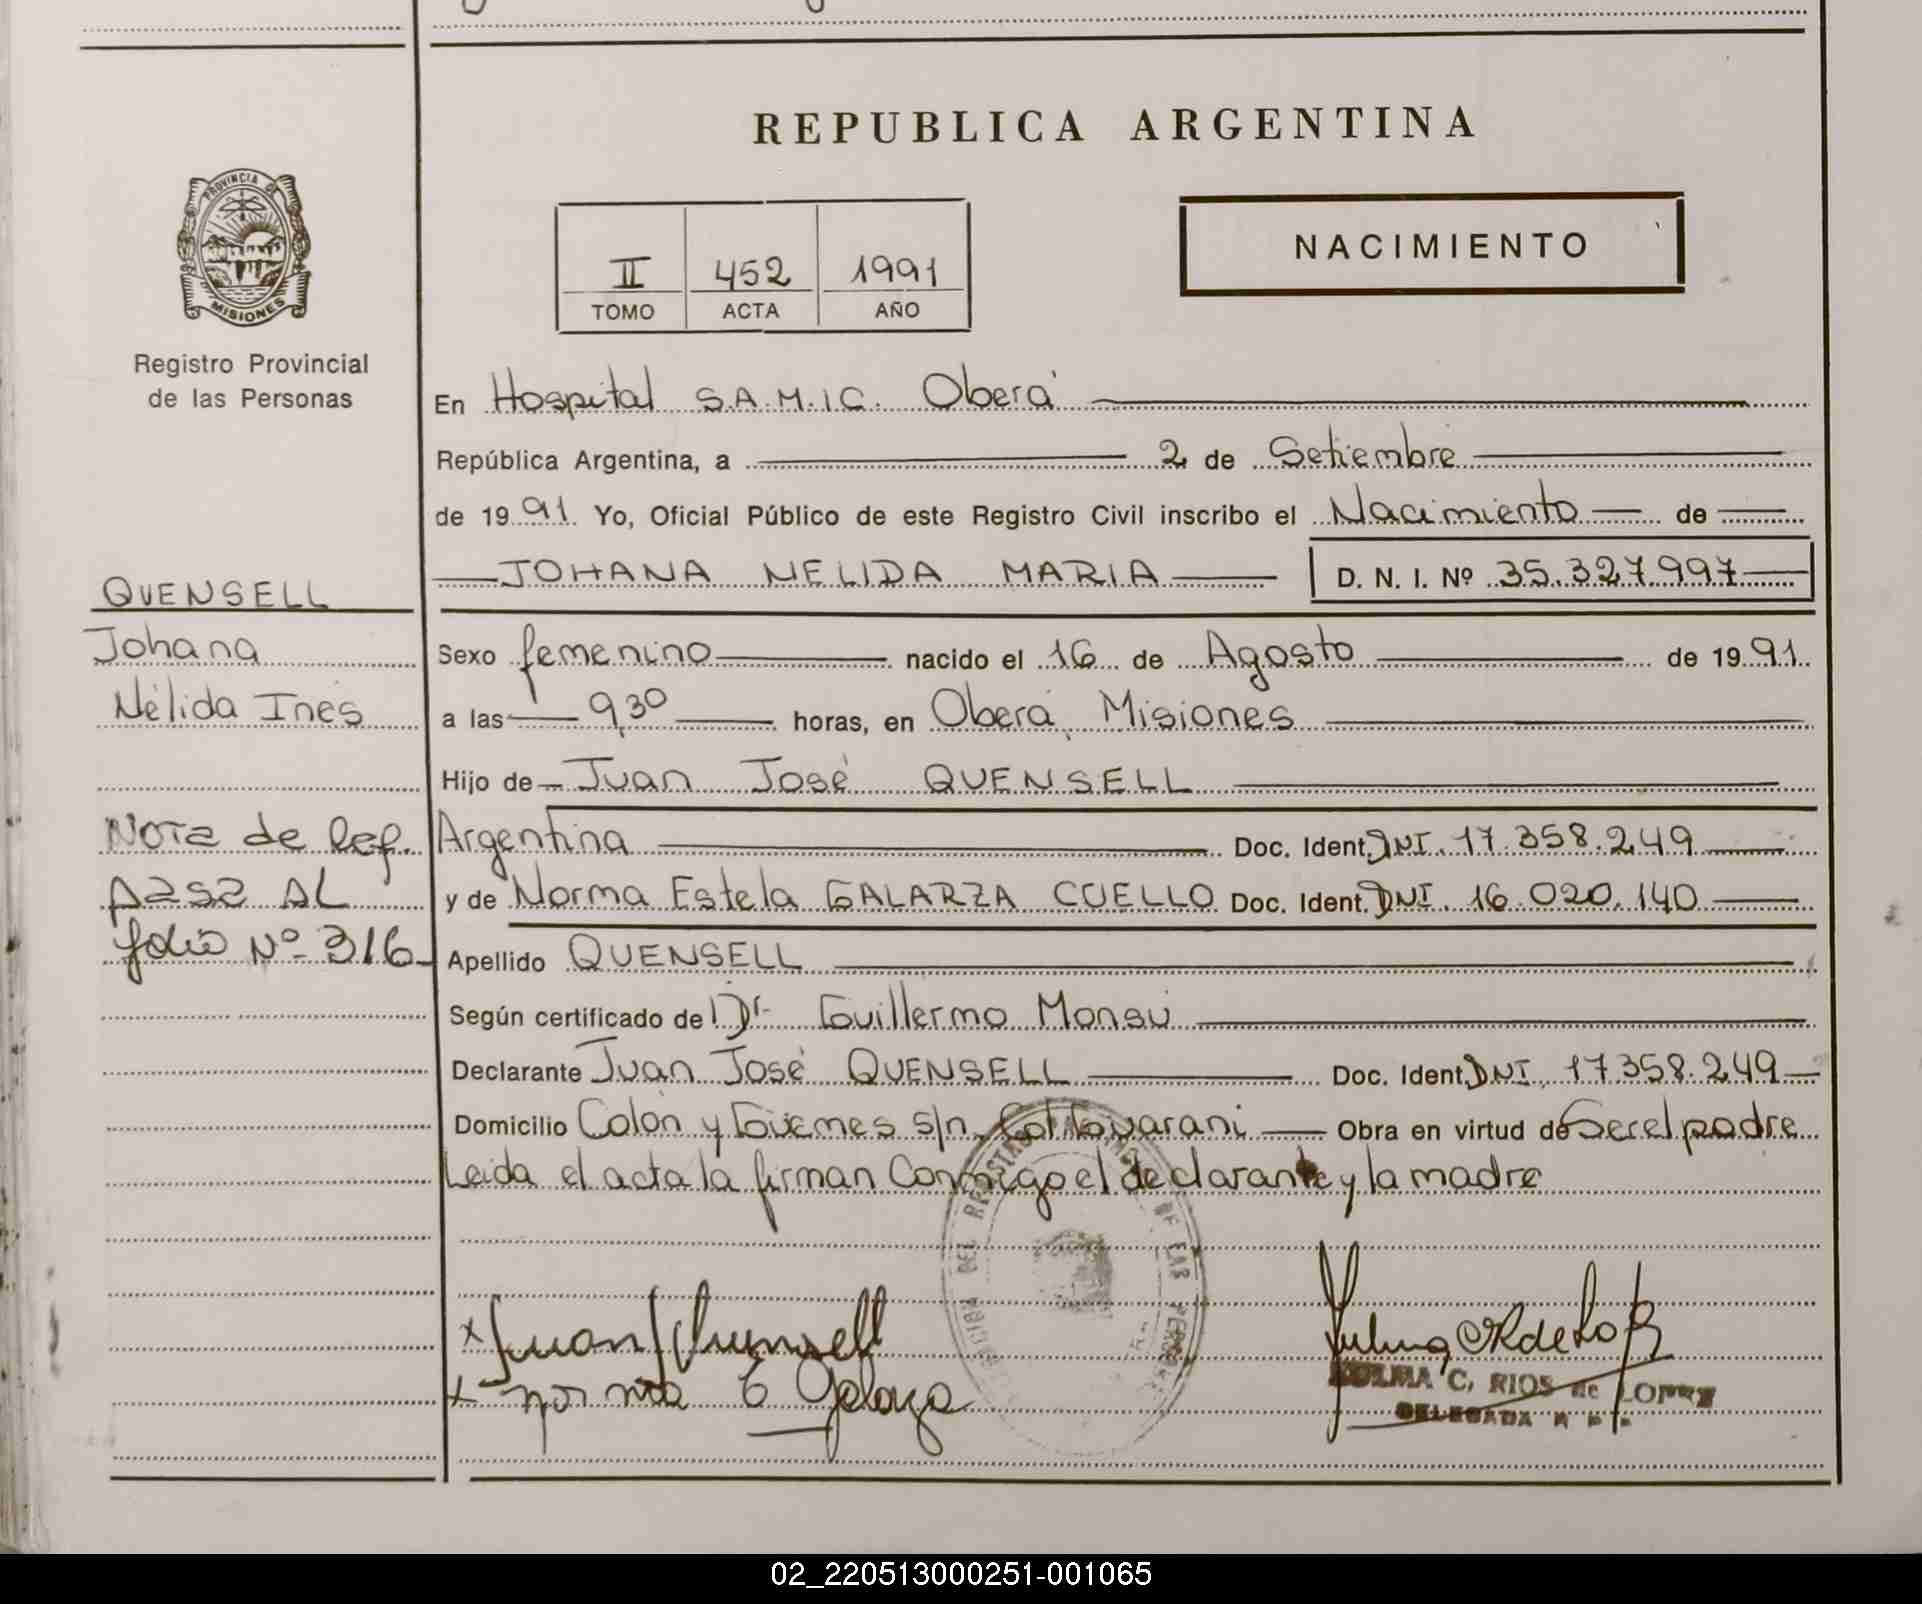 PROVINCIA DE
MISIONES
Registro Provincial
de las Personas
QUENSELL
Johana
Nélida Ines
Nota de Ref.
pasa AL
folio Nº 316
REPUBLICA ARGENTINA
II 452 1991
TOMO ACTA AÑO
NACIMIENTO
En Hospital S.A.M.I.C. Oberá
República Argentina, a 2 de Setiembre
de 1991. Yo, Oficial Público de este Registro Civil inscribo el Nacimiento de
JOHANA NELIDA MARIA D. N. I. Nº 35.327.997
Sexo femenino nacido el 16 de Agosto de 1991.
a las 9,30 horas, en Oberá, Misiones
Hijo de Juan José QUENSELL
Argentina Doc. Ident. DNI. 17.358.249
y de Norma Estela GALARZA CUELLO Doc. Ident. DNI. 16.020.140
Apellido QUENSELL
Según certificado de Dr Guillermo Monsú
Declarante Juan José QUENSELL Doc. Ident. DNI. 17.358.249
Domicilio Colón y Güemes s/n. Col Guarani Obra en virtud de Ser el padre
Leída el acta la firman Conmigo el declarante y la madre
x Juan J Quensell
x norma E Galarza
C. RIOS de LOPEZ
DELEGADA
02_220513000251-001065